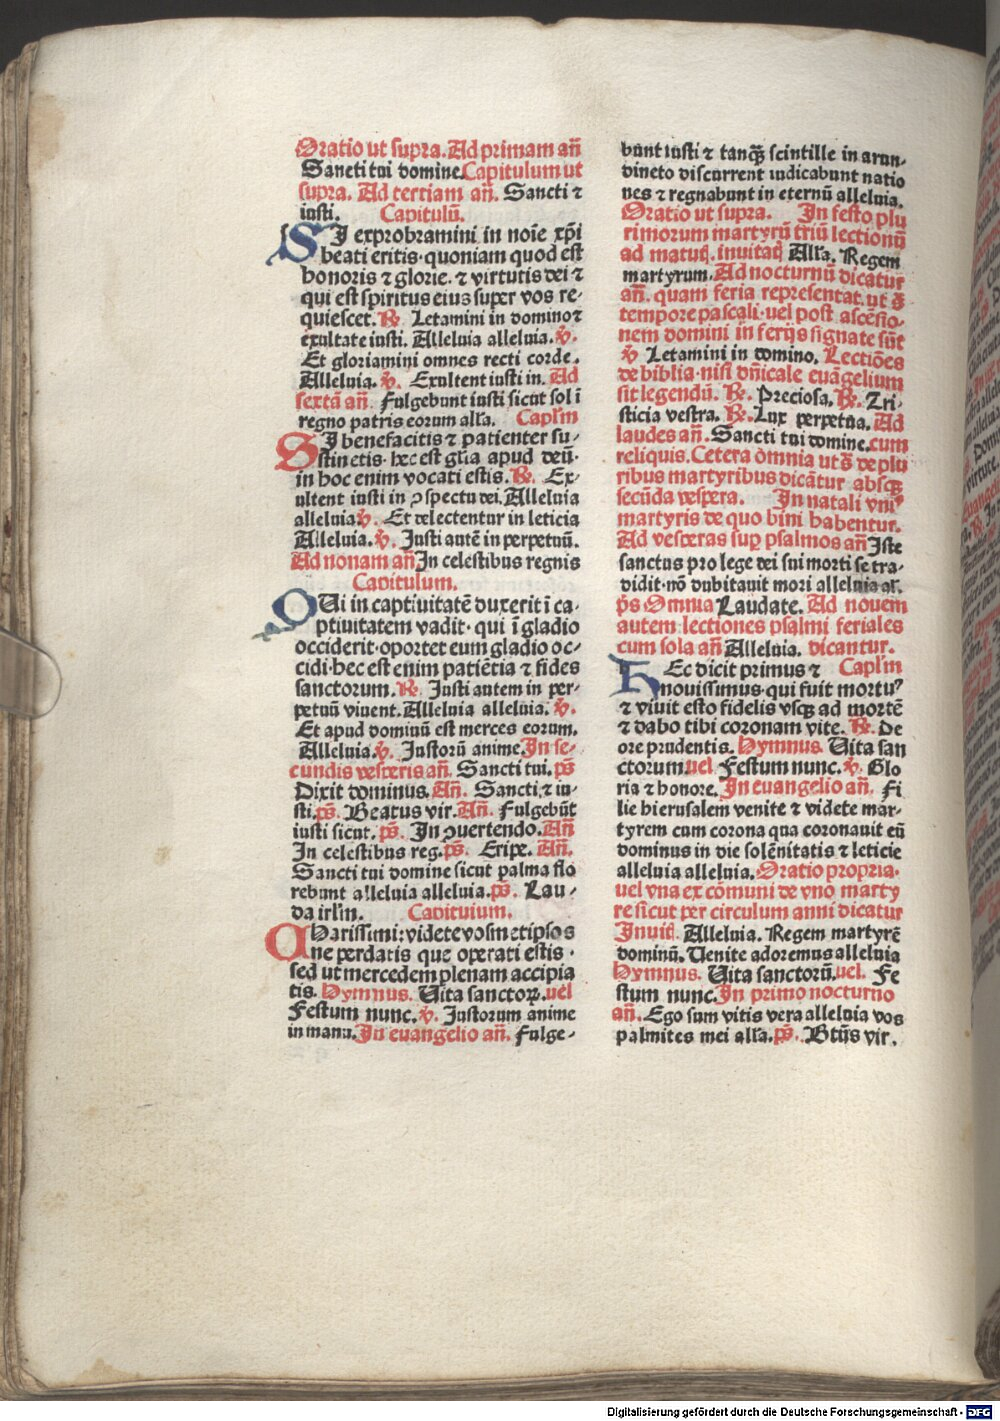 Oratio ut supra. Ad primam an̄
Sancti tui domine. Capitulum ut
supra. Ad tertiam an̄. Sancti ⁊
iusti. Capitulū.
SI exprobramini in noīe xp̄i
beati eritis· quoniam quod est
honoris ⁊ glorie. ⁊ virtutis dei ⁊
qui est spiritus eius super vos re-
quiescet. ℟. Letamini in domino ⁊
exultate iusti. Alleluia alleluia. ℣.
Et gloriamini omnes recti corde.
Alleluia. ℣. Exultent iusti in. Ad
sextā an̄. Fulgebunt iusti sicut sol ī
regno patris eorum all'a. Capl'm
SI benefacitis ⁊ patienter su-
stinetis· hec est gr̄a apud deū·
in hoc enim vocati estis. ℟. Ex-
ultent iusti in ꝯspectu dei. Alleluia
alleluia. ℣. Et delectentur in leticia
Alleluia. ℣. Justi autē in perpetuū.
Ad nonam an̄ In celestibus regnis
Capitulum.
QUi in captiuitatē duxerit ī ca-
ptiuitatem vadit· qui ī gladio
occiderit· oportet eum gladio oc-
cidi· hec est enim patiētia ⁊ fides
sanctorum. ℟. Justi autem in per-
petuū viuent. Alleluia alleluia. ℣.
Et apud dominū est merces eorum.
Alleluia. ℣. Justorū anime. In se-
cundis vesperis an̄. Sancti tui. ps̄
Dixit dominus. An̄. Sancti. ⁊ iu-
sti. ps̄. Beatus vir. An̄. Fulgebūt
iusti sicut. ps̄. In ꝯuertendo. An̄
In celestibus reg. ps̄. Eripe. An̄.
Sancti tui domine sicut palma flo
rebunt alleluia alleluia. ps̄. Lau-
da irl'm. Capitulum.
CHarissimi: videte vosmetipsos
ne perdatis que operati estis·
sed ut mercedem plenam accipia
tis. Hymnus. Uita sanctoꝝ. uel
Festum nunc. ℣. Justorum anime
in manu. In euangelio an̄. Fulge-
bunt iusti ⁊ tanqꝫ scintille in arun-
dineto discurrent iudicabunt natio
nes ⁊ regnabunt in eternū alleluia.
Oratio ut supra. In festo plu
rimorum martyrū triū lectionū
ad matuꝭ. inuitaꝭ All'a. Regem
martyrum. Ad nocturnū dicatur
an̄. quam feria representat. ut s̄
tempore pascali· vel post ascēsio-
nem domini in ferijs signate sūt
℣ Letamini in domino. Lectiōes
de biblia· nisi dn̄icale euāgelium
sit legendū. ℟. Preciosa. ℟. Tri-
sticia vestra. ℟. Lux perpetua. Ad
laudes an̄. Sancti tui domine. cum
reliquis. Cetera omnia ut s̄ de plu
ribus martyribus dicātur absqꝫ
secūda vespera. In natali vniꝰ
martyris de quo hīni habentur.
Ad vesperas suꝑ psalmos an̄ Iste
sanctus pro lege dei sui morti se tra-
didit· nō dubitauit mori alleluia al'.
ps̄ Omnia Laudate. Ad nouem
autem lectiones psalmi feriales
cum sola an̄ Alleluia. dicantur.
HEc dicit primus ⁊ Capl'm
nouissimus· qui fuit mortuꝰ
⁊ viuit esto fidelis vsqꝫ ad mortē
⁊ dabo tibi coronam vite. ℟. De
ore prudentis. Hymnus. Uita san
ctorum. uel Festum nunc. ℣. Glo
ria ⁊ honore. In euangelio an̄. Fi
lie hierusalem venite ⁊ videte mar-
tyrem cum corona qua coronauit eū
dominus in die solēnitatis ⁊ leticie
alleluia alleluia. Oratio propria·
uel vna ex cōmuni de vno marty
re sicut per circulum anni dicatur
Inuiꝭ. Alleluia. Regem martyrē
dominū. Uenite adoremus alleluia
Hymnus. Uita sanctorū. uel. Fe
stum nunc. In primo nocturno
an̄. Ego sum vitis vera alleluia vos
palmites mei all'a. ps̄. Bt̄us vir.
Digitalisierung gefördert durch die Deutsche Forschungsgemeinschaft - DFG